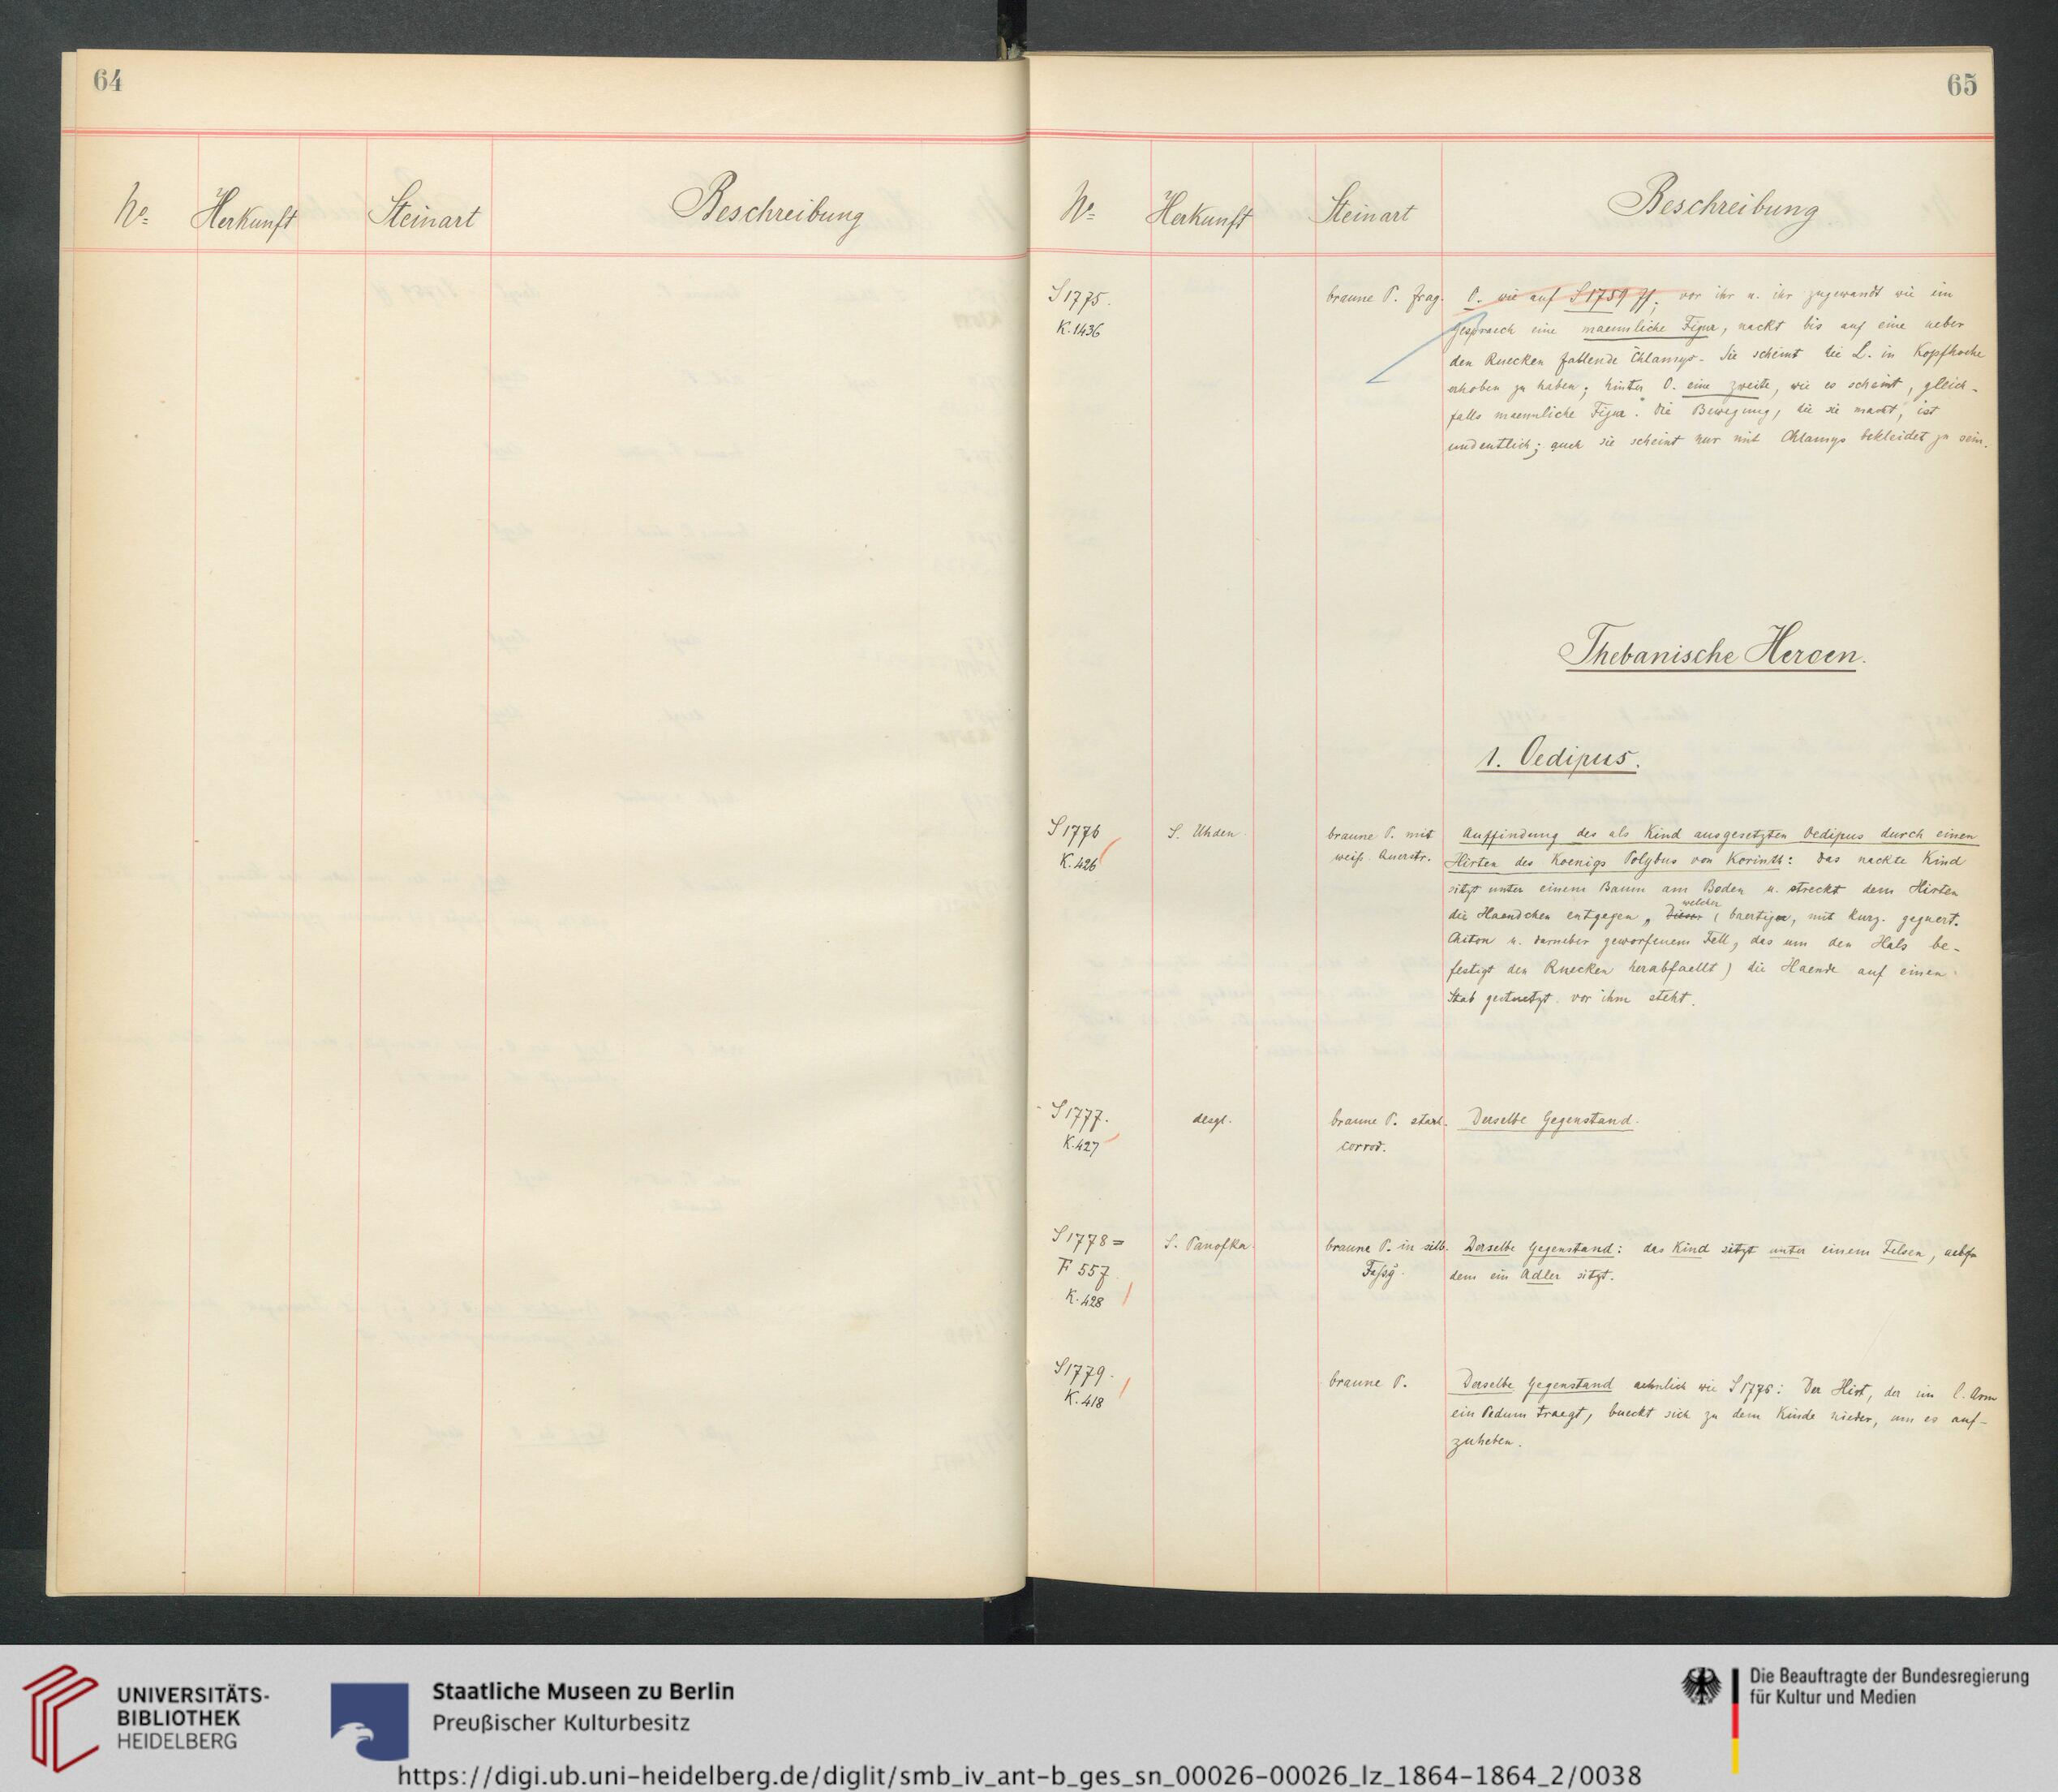 64
No. Herkunft Steinart Beschreibung
65
No. Herkunft Steinart Beschreibung
S 1775. braune P. frag. O. wie auf S 1759 ff, vor ihr u. ihr zugewandt wie im
K. 1436 Gespraech eine maennliche Figur, nackt bis auf eine ueber
den Ruecken fallende Chlamys. Sie scheint die L. in Kopfhoehe
erhoben zu haben; hinter O. eine zweite, wie es scheint, gleich-
falls maennliche Figur. Die Bewegung, die sie macht, ist
undeutlich; auch sie scheint nur mit Chlamys bekleidet zu sein.
Thebanische Heroen.
1. Oedipus.
S 1776 S. Uhden braune P. mit Auffindung des als Kind ausgesetzten Oedipus durch einen
K. 426 weiß. Querstr. Hirten des Koenigs Polybus von Korinth: das nackte Kind
sitzt unter einem Baum am Boden u. streckt dem Hirten
welcher
die Haendchen entgegen, Dieser (baertiger, mit kurz. geguert.
Chiton u. darueber geworfenem Fell, das um den Hals be-
festigt den Ruecken herabfaellt) die Haende auf einen
Stab gestuetzt vor ihm steht.
S 1777. desgl. braune P. stark. Derselbe Gegenstand.
K. 427 corrod.
S 1778 = S. Panofka. braune P. in silb. Derselbe Gegenstand: das Kind sitzt unter einem Felsen, auf
F 557 Faßg. dem ein Adler sitzt.
K. 428
S 1779. braune P. Derselbe Gegenstand aehnlich wie S 1776: Der Hirt, der im l. Arm
K. 418 ein Pedum traegt, bueckt sich zu dem Kinde nieder, um es auf-
zuheben.
UNIVERSITÄTS-
BIBLIOTHEK
HEIDELBERG
Staatliche Museen zu Berlin
Preußischer Kulturbesitz
Die Beauftragte der Bundesregierung
für Kultur und Medien
https://digi.ub.uni-heidelberg.de/diglit/smb_iv_ant-b_ges_sn_00026-00026_lz_1864-1864_2/0038